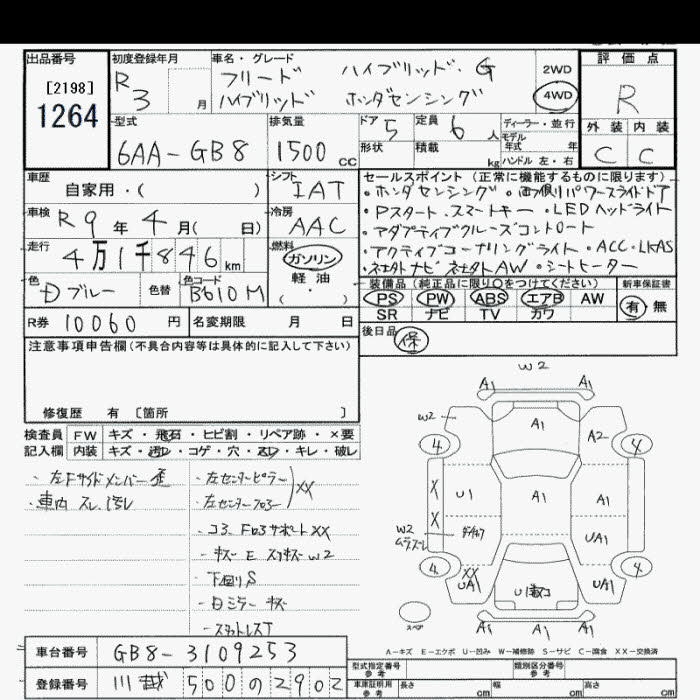 出品番号
[2198]
1264
初度登録年月
R 3 月
車名・グレード
フリード ハイブリッド・G
ハイブリッド ホンダセンシング
2WD
4WD
評価点
R
外装 内装
C C
型式
6AA-GB8
排気量
1500 cc
ドア 5
定員 6 人
形状
積載 kg
ディーラー・並行
モデル年式 年
ハンドル 左・右
車歴
自家用・( )
シフト
IAT
車検 R9年 4月( 日)
冷房
AAC
走行
4万1千846 km
燃料
ガソリン
軽油
( ・ )
色
D ブルー
色替
色コード
B610M
R券 10060 円
名変期限 月 日
セールスポイント(正常に機能するものに限ります)
・ホンダセンシング ・両側パワースライドドア
・Pスタート、スマートキー ・LEDヘッドライト
・アダプティブクルーズコントロート
・アクティブコーナリングライト ・ACC・LKAS
・社外ナビ 社外AW ・シートヒーター
装備品(純正品に限り○をつけてください)
PS PW ABS エアB AW
SR ナビ TV カワ
新車保証書
有・無
後日品 保
注意事項申告欄(不具合内容等は具体的に記入して下さい)
修復歴 有 [箇所 ]
検査員 FW キズ・飛石・ヒビ割・リペア跡・×要
記入欄 内装 キズ・汚レ・コゲ・穴・スレ・キレ・破レ
・左Fサイドメンバー歪
・車内 スレ、汚レ
・左センターピラー
・左センターフロアー
XX
・コア、Fロアサポート XX
・キズ E スリキズ W2
・下回りS
・D ミラー キズ
W2
A1 A1
W2 A1 A2
4 4
X U1 A1 A1
X UA1
W2
4 XX 4
UA1 UA1
A1 A1 A1
スペア
A-キズ E-エクボ U-凹み W-補修跡 S-サビ C-腐食 XX-交換済
車台番号 GB8-3109253
登録番号 川越 500の2902
型式指定番号
参考
類別区分番号
参考
車庫証明用
参考
長さ cm 幅 cm 高さ cm